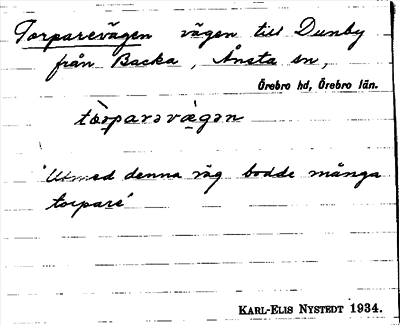 Torparevägen vägen till Dunby
från Backa, Ånsta sn,
Örebro hd, Örebro län.
tòrparəvæ̀gən
'Utmed denna väg bodde många
torpare'
KARL-ELIS NYSTEDT 1934.